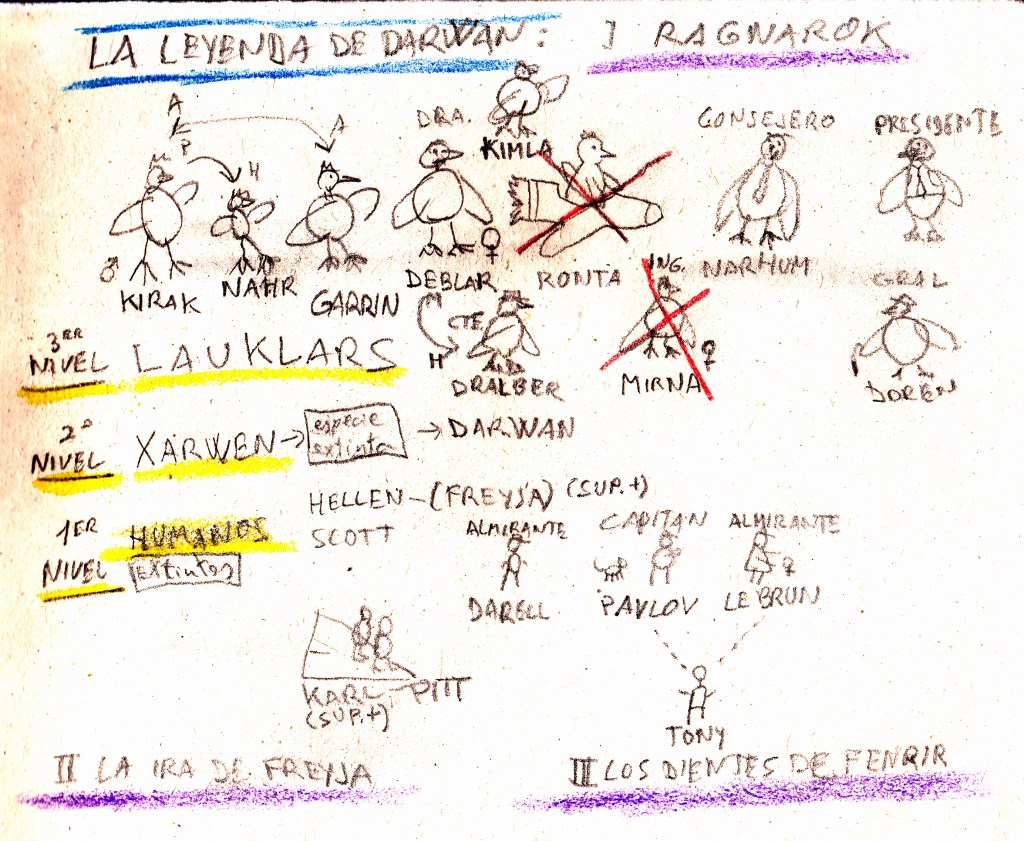 LA LEYENDA DE DARWAN: I RAGNAROK
A
P
H
A
DRA.
KIMLA
CONSEJERO
PRESIDENTE
♂
KIRAK
NAHR
GARRIN
♀
DEBLAR
RONTA
NARHUM
3ER
NIVEL
LAUKLARS
H
CTE
DRALBER
ING.
♀
MIRNA
GRAL
DOREN
2º
NIVEL
XARWEN → especie
extinta → DARWAN
1ER
NIVEL
HUMANOS
extintos
HELLEN - (FREYJA) (SUP.+)
SCOTT
ALMIRANTE
DARELL
CAPITAN
PAVLOV
ALMIRANTE
♀
LE BRUN
KARL - PITT
(SUP.+)
TONY
II LA IRA DE FREYJA
III LOS DIENTES DE FENRIR